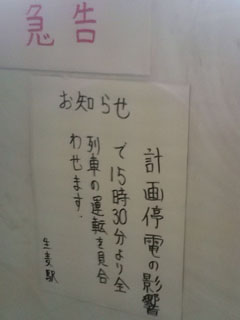 急告
お知らせ
計画停電の影響
で15時30分より全
列車の運転を見合
わせます.
生麦駅